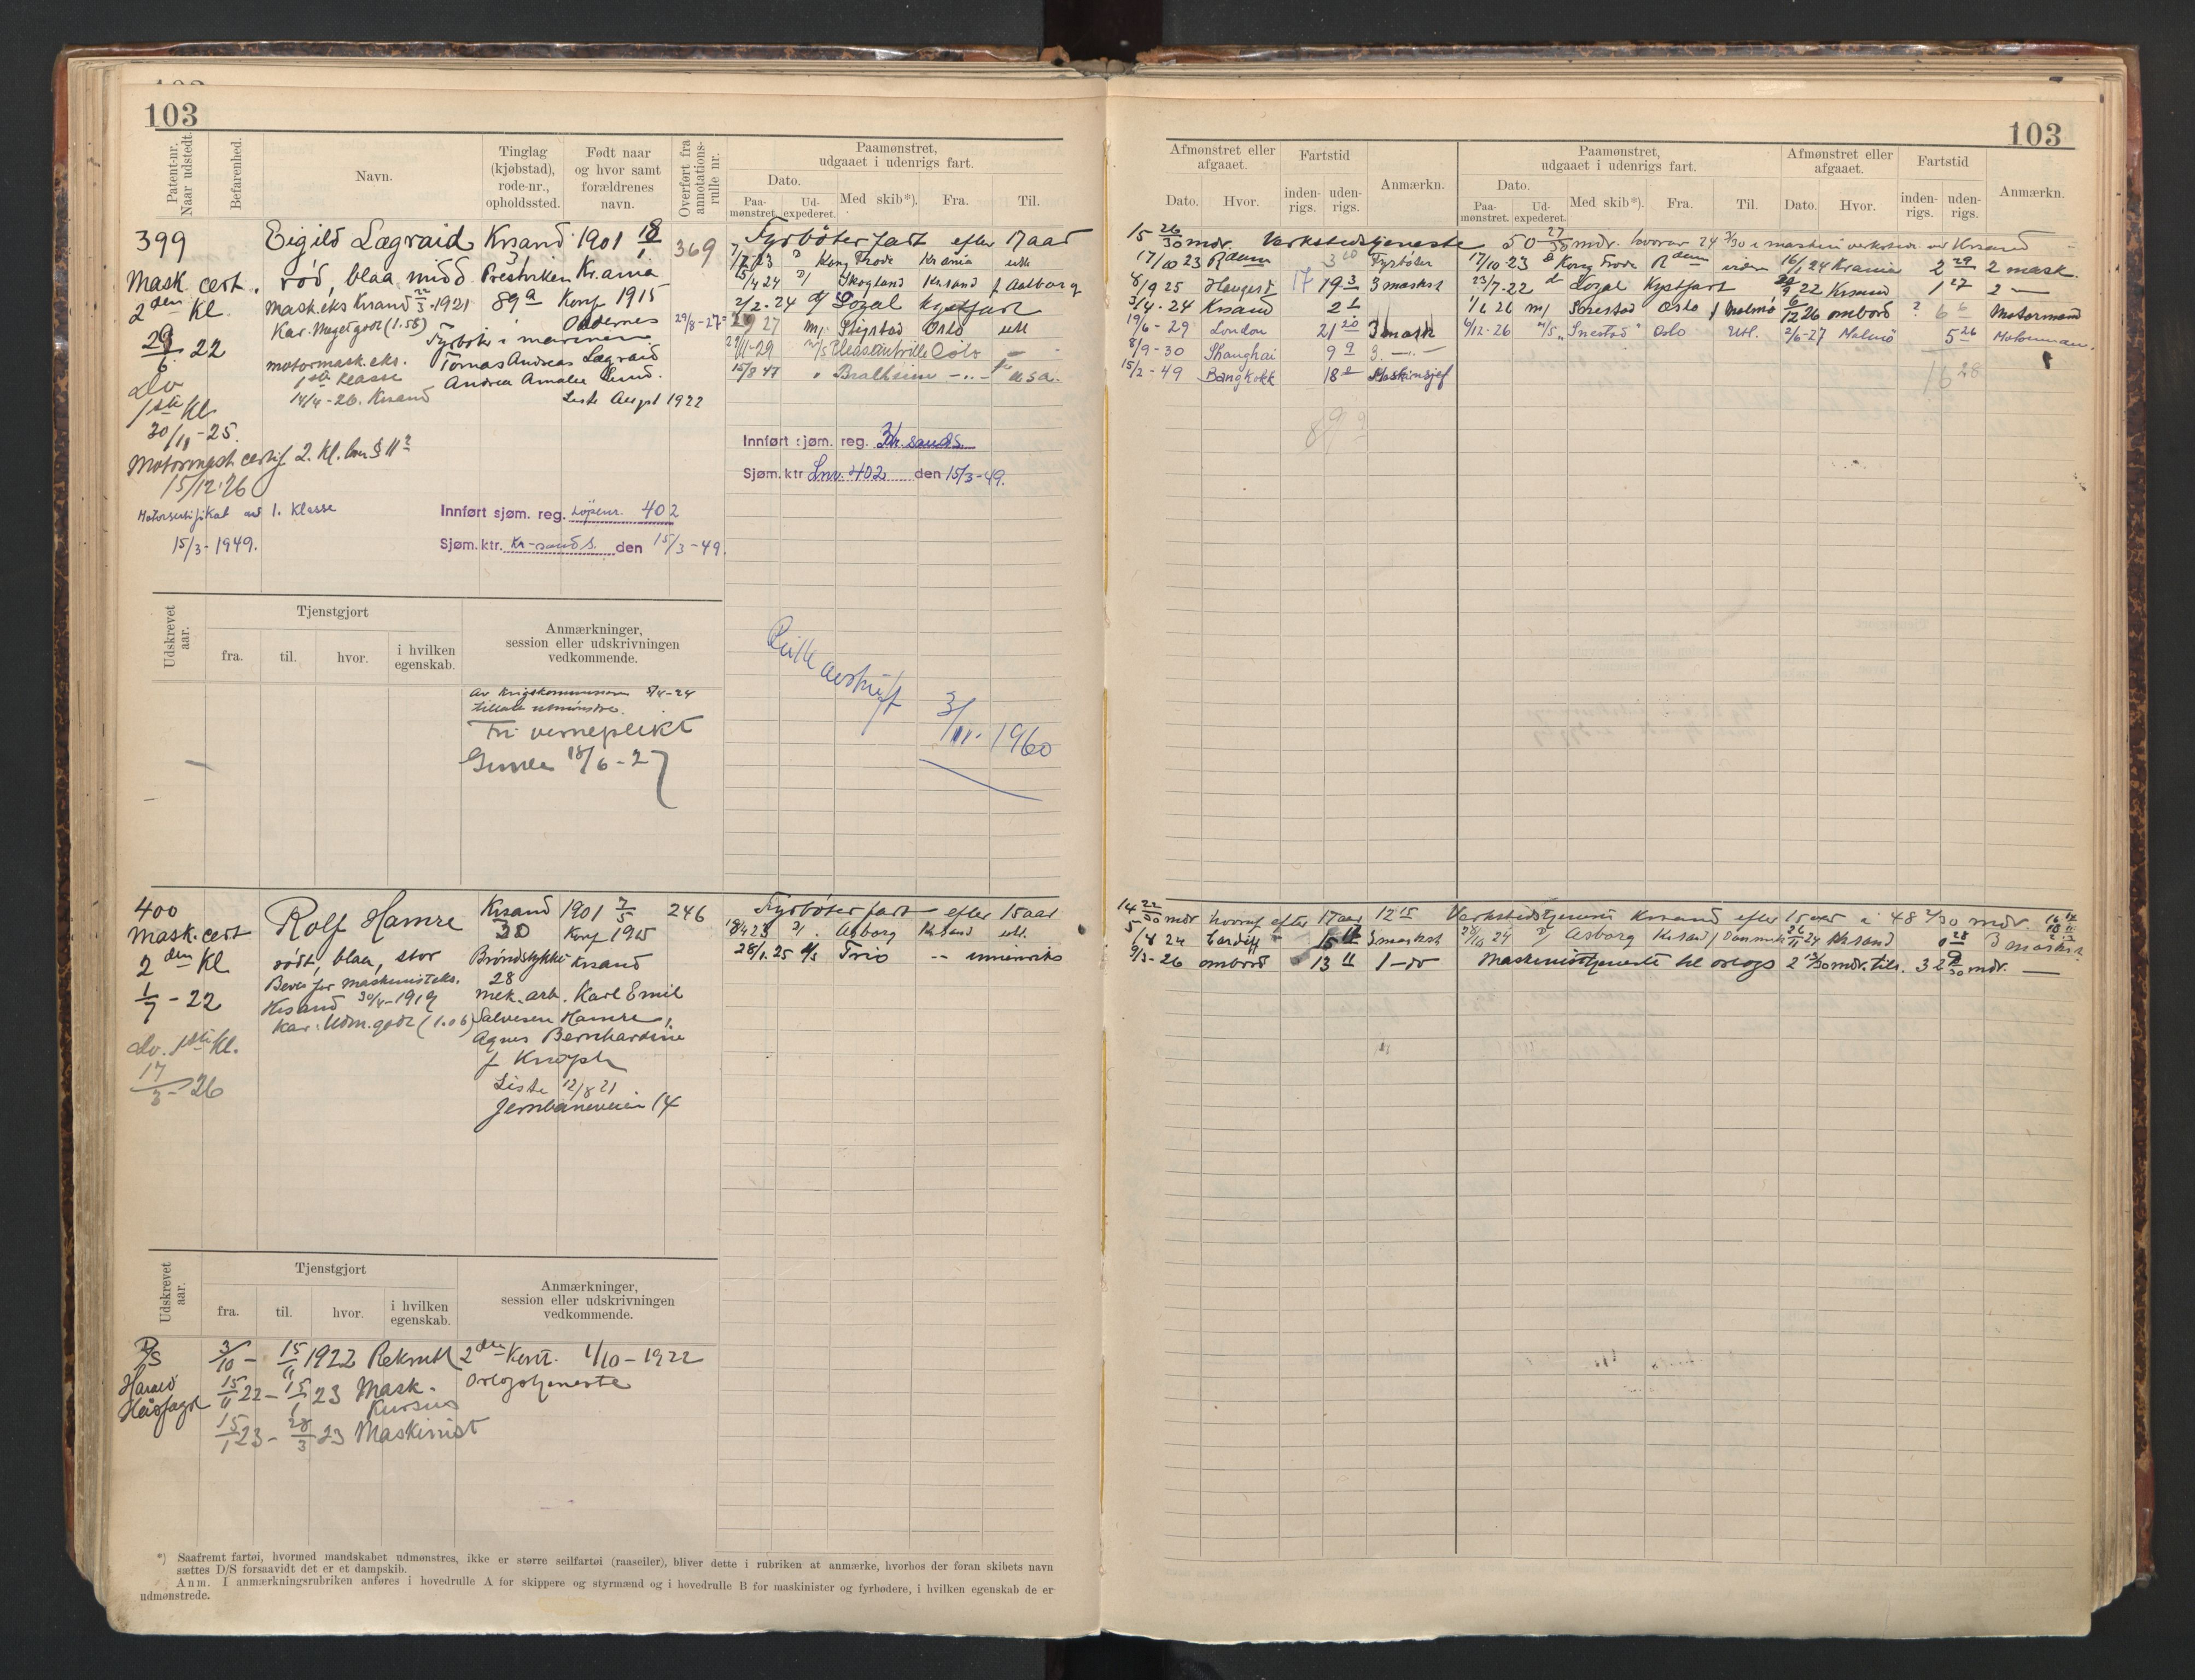 103
103
Patent-nr.
Naar udstedt.
Befarenhed.
Navn.
Tinglag
(kjøbstad),
rode-nr.,
opholdssted.
Født naar
og hvor samt
forældrenes
navn.
Overført fra
annotations-
rulle nr.
Paamønstret,
udgaaet i udenrigs fart.
Dato.
Paa-
mønstret.
Ud-
expederet.
Med skib*).
Fra.
Til.
399
Eigild Lægraid
Krsand
1901 18/1
369
Mask. cert.
rød, blaa, midd
Kr.ania
2den Kl.
Mask.eks Krsand 22/3-1921
89a
Konf 1915
Kar. Meget godt (1.58)
Oddernes
29/8-27
29/6 22
Fyrbøter i marinen
motormask.eks.
Tomas Andreas Lægraid
1ste Klasse
Andrea Amalie Lund.
14/4-26. Krsand
Liste Augst 1922
do
1ste Kl.
30/11-25.
Motormask certif 2. Kl.
15/12-26
1. Klasse
15/3-1949.
Innført sjøm. reg. Løpenr. 402
Sjøm.ktr. Kr-sand S. den 15/3-49.
Fyrbøterfart efter 17 aar
Kong Frode Kr ania utl
15/4 24 Skogland Krsand f Aalborg
2/2-24 Loyal Kystfart
27 M/ Oslo utl
M/S Pleasantville Oslo
15/8 47 " Bralheim -"- USA.
Innført sjøm. reg. Kr.sands.
Sjøm.ktr Lnr. 402 den 15/3-49.
Udskrevet
aar.
Tjenstgjort
fra.
til.
hvor.
i hvilken
egenskab.
Anmærkninger,
session eller udskrivningen
vedkommende.
Av Krigskommissæren 5/4-24
Fri verneplikt
18/6-27
Rulleavskrift
3/11-1960
400
Rolf Hamre
Krsand
30
1901 7/5
246
Mask. cert
Konf 1915
2den Kl
rødt, blaa, stor
Krsand
28
1/7-22
Bevis for maskinisteks.
Krsand 30/4-1919
mek. arb. Karl Emil
Kar: Udm. godt (1.06)
Salvesen Hamre,
Agnes Bernhardine
f Knoph
do. 1ste Kl.
17/3-26
Liste 12/8 21
Jernbaneveien 14
Fyrbøterfart efter 15 aar
Asborg Krsand utl.
28/1.25 Trio -- innenriks
Udskrevet
aar.
Tjenstgjort
fra.
til.
hvor.
i hvilken
egenskab.
Anmærkninger,
session eller udskrivningen
vedkommende.
P/S
3/10 - 15/11 1922 Rekrutt
2den Kont. 1/10-1922
Harald
15/11 22 - 15/1 23 Mask.
Orlogstjeneste
Haarfagre
Kursus
15/1 23 - 28/3 23 Maskinist
*) Saafremt fartøi, hvormed mandskabet udmønstres, ikke er større seilfartøi (raaseiler), bliver dette i rubriken at anmærke, hvorhos der foran skibets navn
sættes D/S forsaavidt det er et dampskib.
Anm. I anmærkningsrubriken anføres i hovedrulle A for skippere og styrmænd og i hovedrulle B for maskinister og fyrbødere, i hvilken egenskab de er
udmønstrede.
Afmønstret eller
afgaaet.
Fartstid
Dato.
Hvor.
inden-
rigs.
uden-
rigs.
Anmærkn.
Paamønstret,
udgaaet i udenrigs fart.
Dato.
Paa-
mønstret.
Ud-
expederet.
Med skib*).
Fra.
Til.
Afmønstret eller
afgaaet.
Dato.
Hvor.
Fartstid
inden-
rigs.
uden-
rigs.
Anmærkn.
15 26/30 mdr. Verkstedstjeneste 50 27/30 mdr. hvorav 24 i maskin verksted ved Krsand
17/10 23 Rdam 3 Fyrbøter
17/10-23 Kong Frode Rdam 16/1 24 Krania 2 29 2 mask.
8/9 25 Haugesd 17 19 3 3 maskst
23/7-22 Loyal Kystfart 22 Krsand 1 27 2 —
3/4-24 Krsand 2 1
1/6 26 M/ Snestad Oslo f Malmø 6/12 26 ombord 6 6 Motormand
19/6-29 London 21 20 3 mask
6/12-26 M/S "Snestad" Oslo Utl. 2/6-27 Malmø 5 26 Motormann.
8/9-30 Shanghai 9 9 3.
15/2-49 Bangkokk 18 Maskinsjef
16 28
89 9
14 22/30 mdr hvorav efter 17 aar 12 15 Verkstedstjeneste Krsand efter 15 aar i 48 mdr.
5/8 24 Cardiff 3 maskst
28/10 24 Asborg Krsand f Danmark 26/11 24 Krsand 0 28 3 maskst.
9/3-26 ombord 13 11 1-do
Maskinisttjeneste til orlogs 2 13/30 mdr. tils. 32 9/30 mdr. —